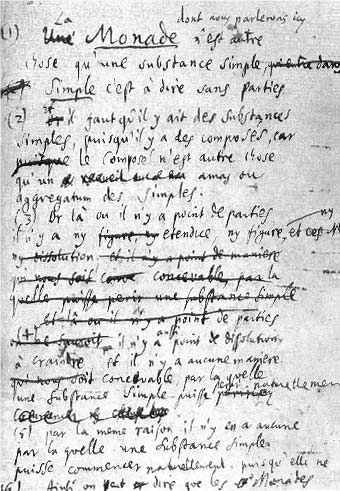 La dont nous parlerons icy
(1) Une Monade n'est autre
chose qu'une substance simple, qui entre dans
Simple c'est à dire sans parties
(2) Et il faut qu'il y ait des substances
simples, puisqu'il y a des composés, car
puisque le composé n'est autre chose
qu'un recueil amas ou
aggregatum des simples.
(3) Or là ou il n'y a point de parties
il n'y a ny figure, ny etendue ny figure, et ces
ny dissolution et il n'y a point de maniere
qui nous soit concevable, par la
quelle puisse perir une substance simple
Et là ou il n'y a point de parties
(4) il n'y a aussi point de dissolution
à craindre et il n'y a aucune maniere
qui nous soit concevable par la quelle
une substance simple puisse perir naturellement
(5) par la même raison il n'y en a aucune
par la quelle une substance simple
puisse commencer naturellement, puisqu'elle ne
(6) Ainsi on peut dire que les Monades